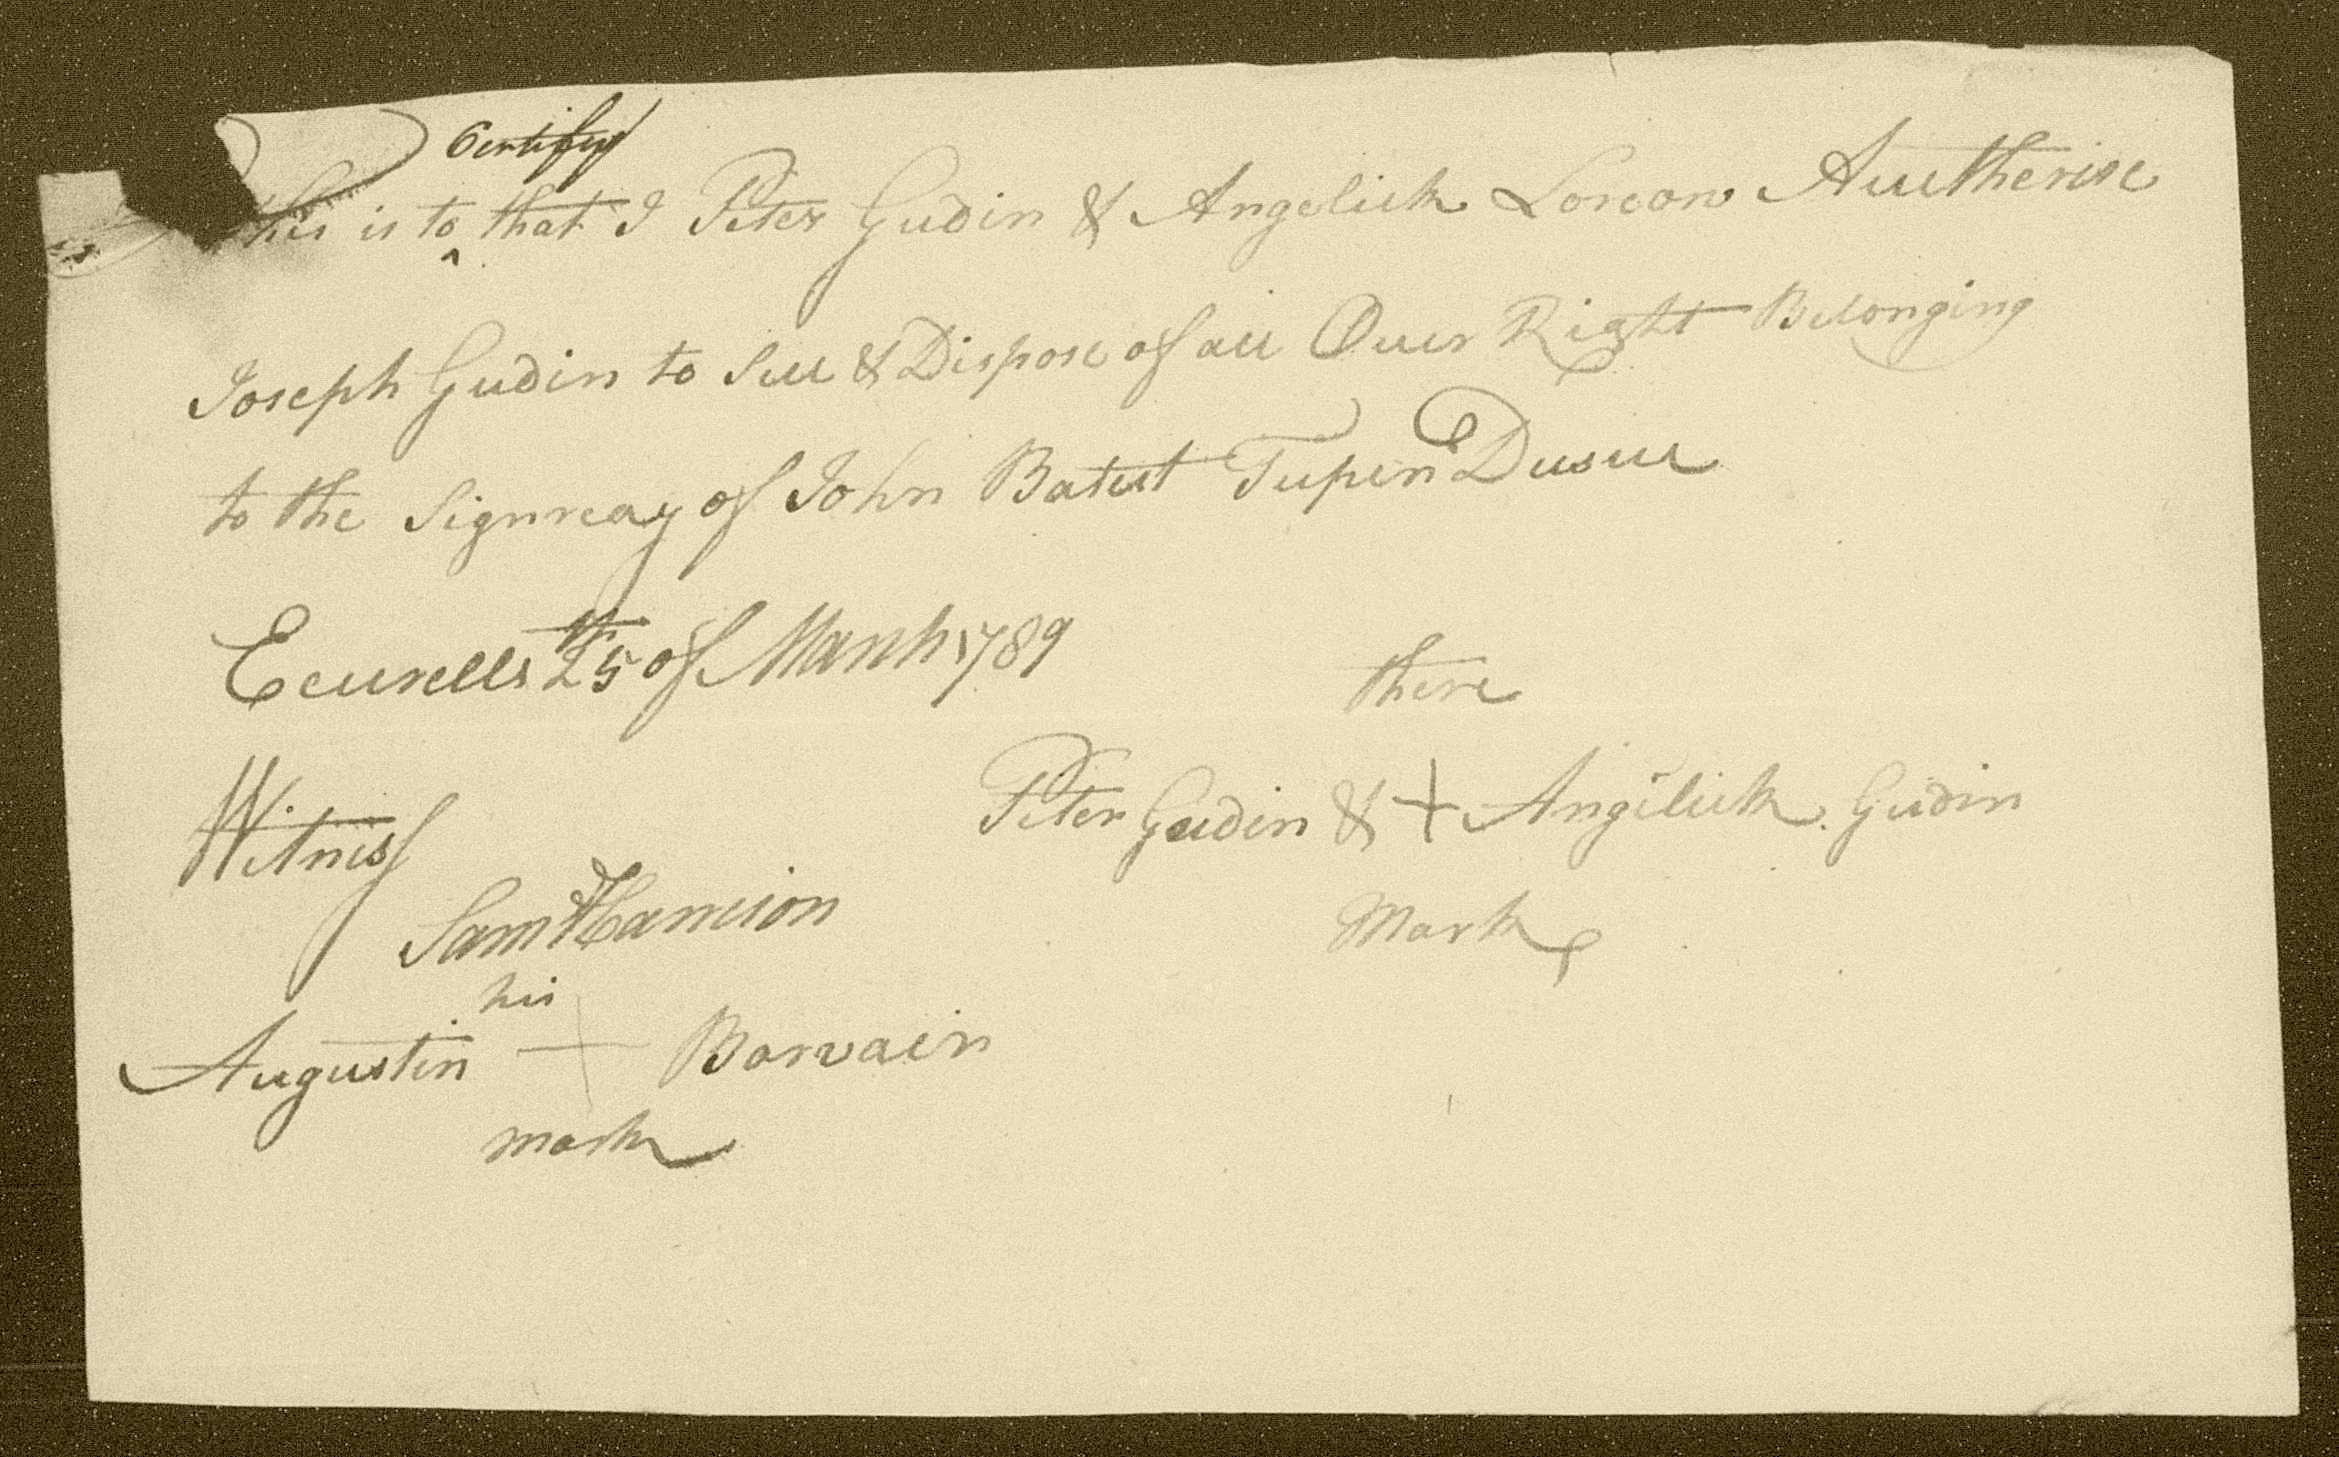 Certify
This is to ^ that I Peter Gudin & Angelick Lorean Autherise
Joseph Gudin to Sell & Dispose of all Ouer Right Belonging
to the Signreay of John Batist Tupin Dusue
Ecurells 25th of March 1789
there
Peter Gudin & + Angelick Gudin
Mark
Witness
Saml Harrison
his
Augustin + Barvain
mark